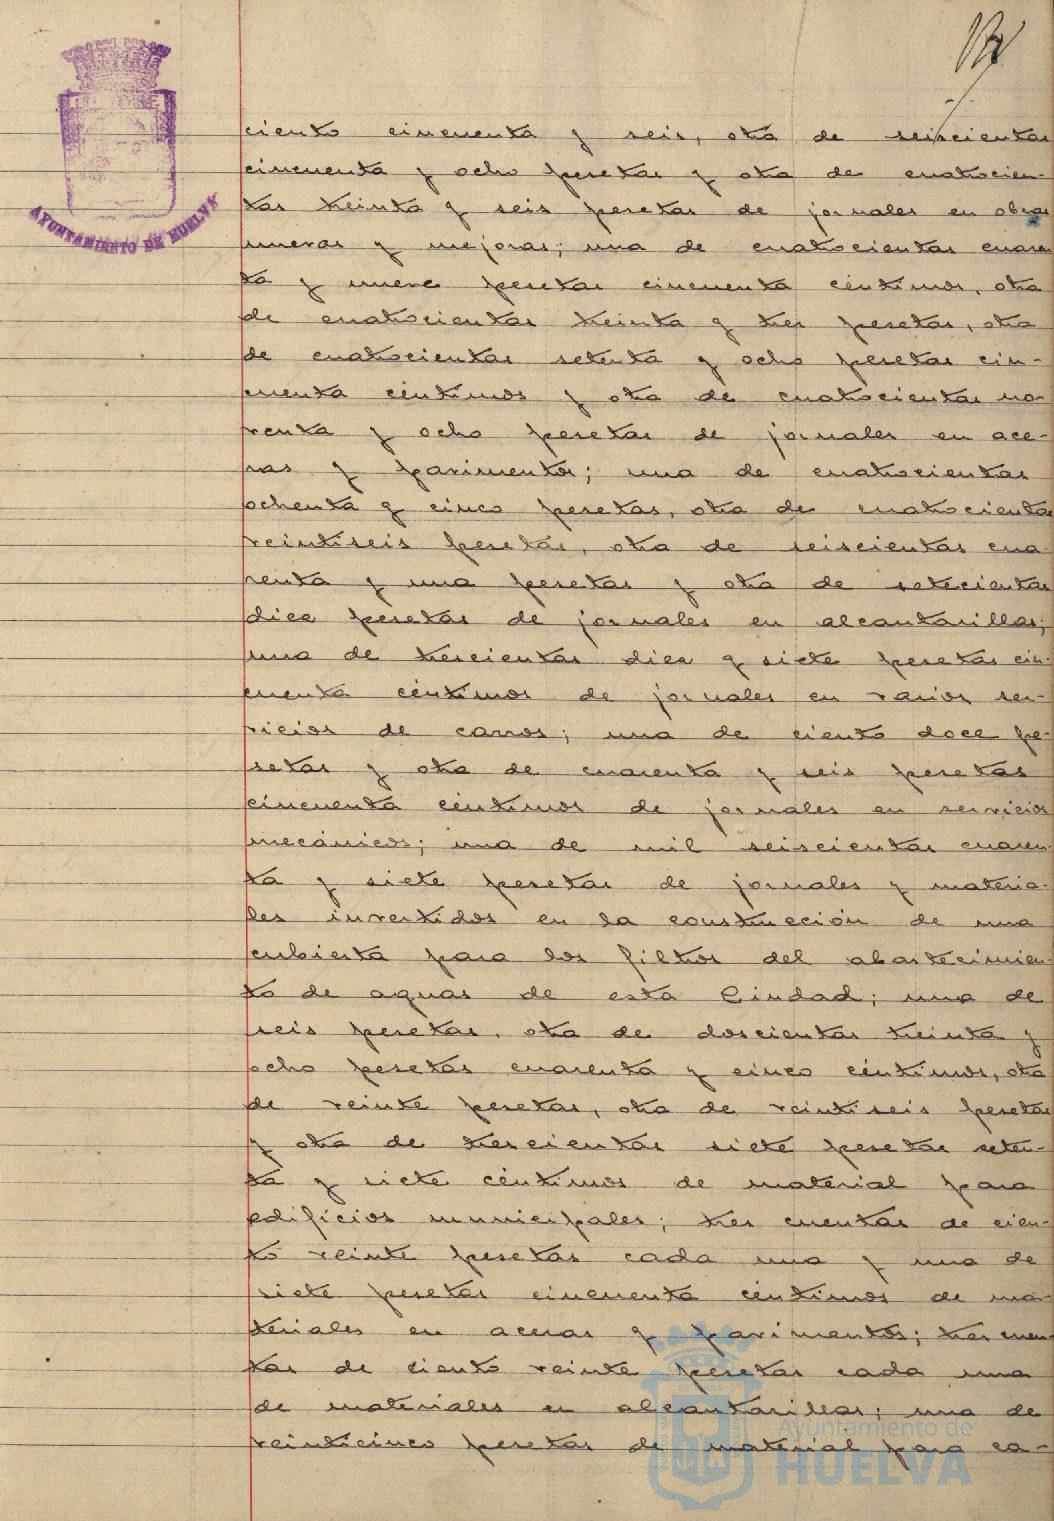 AYUNTAMIENTO DE HUELVA
ciento cincuenta y seis, otra de seiscientas
cincuenta y ocho pesetas y otra de cuatrocien-
tas treinta y seis pesetas de jornales en obras
nuevas y mejoras; una de cuatrocientas cuaren-
ta y nueve pesetas cincuenta céntimos, otra
de cuatrocientas treinta y tres pesetas, otra
de cuatrocientas setenta y ocho pesetas cin-
cuenta céntimos y otra de cuatrocientas no-
venta y ocho pesetas de jornales en ace-
ras y pavimentos; una de cuatrocientas
ochenta y cinco pesetas, otra de cuatrocientas
veintiseis pesetas, otra de seiscientas cua-
renta y una pesetas y otra de setecientas
diez pesetas de jornales en alcantarillas;
una de trescientas diez y siete pesetas cin-
cuenta céntimos de jornales en varios ser-
vicios de carros; una de ciento doce pe-
setas y otra de cuarenta y seis pesetas
cincuenta céntimos de jornales en servicios
mecánicos; una de mil seiscientas cuaren-
ta y siete pesetas de jornales y materia-
les invertidos en la construcción de una
cubierta para los filtros del abastecimien-
to de aguas de esta Ciudad; una de
seis pesetas, otra de doscientas treinta y
ocho pesetas cuarenta y cinco céntimos, otra
de veinte pesetas, otra de veintiseis pesetas
y otra de trescientas siete pesetas seten-
ta y siete céntimos de material para
edificios municipales; tres cuentas de cien-
to veinte pesetas cada una y una de
siete pesetas cincuenta céntimos de ma-
teriales en aceras y pavimentos; tres cuen-
tas de ciento veinte pesetas cada una
de materiales en alcantarillas; una de
veinticinco pesetas de material para ca-
Ayuntamiento de
HUELVA